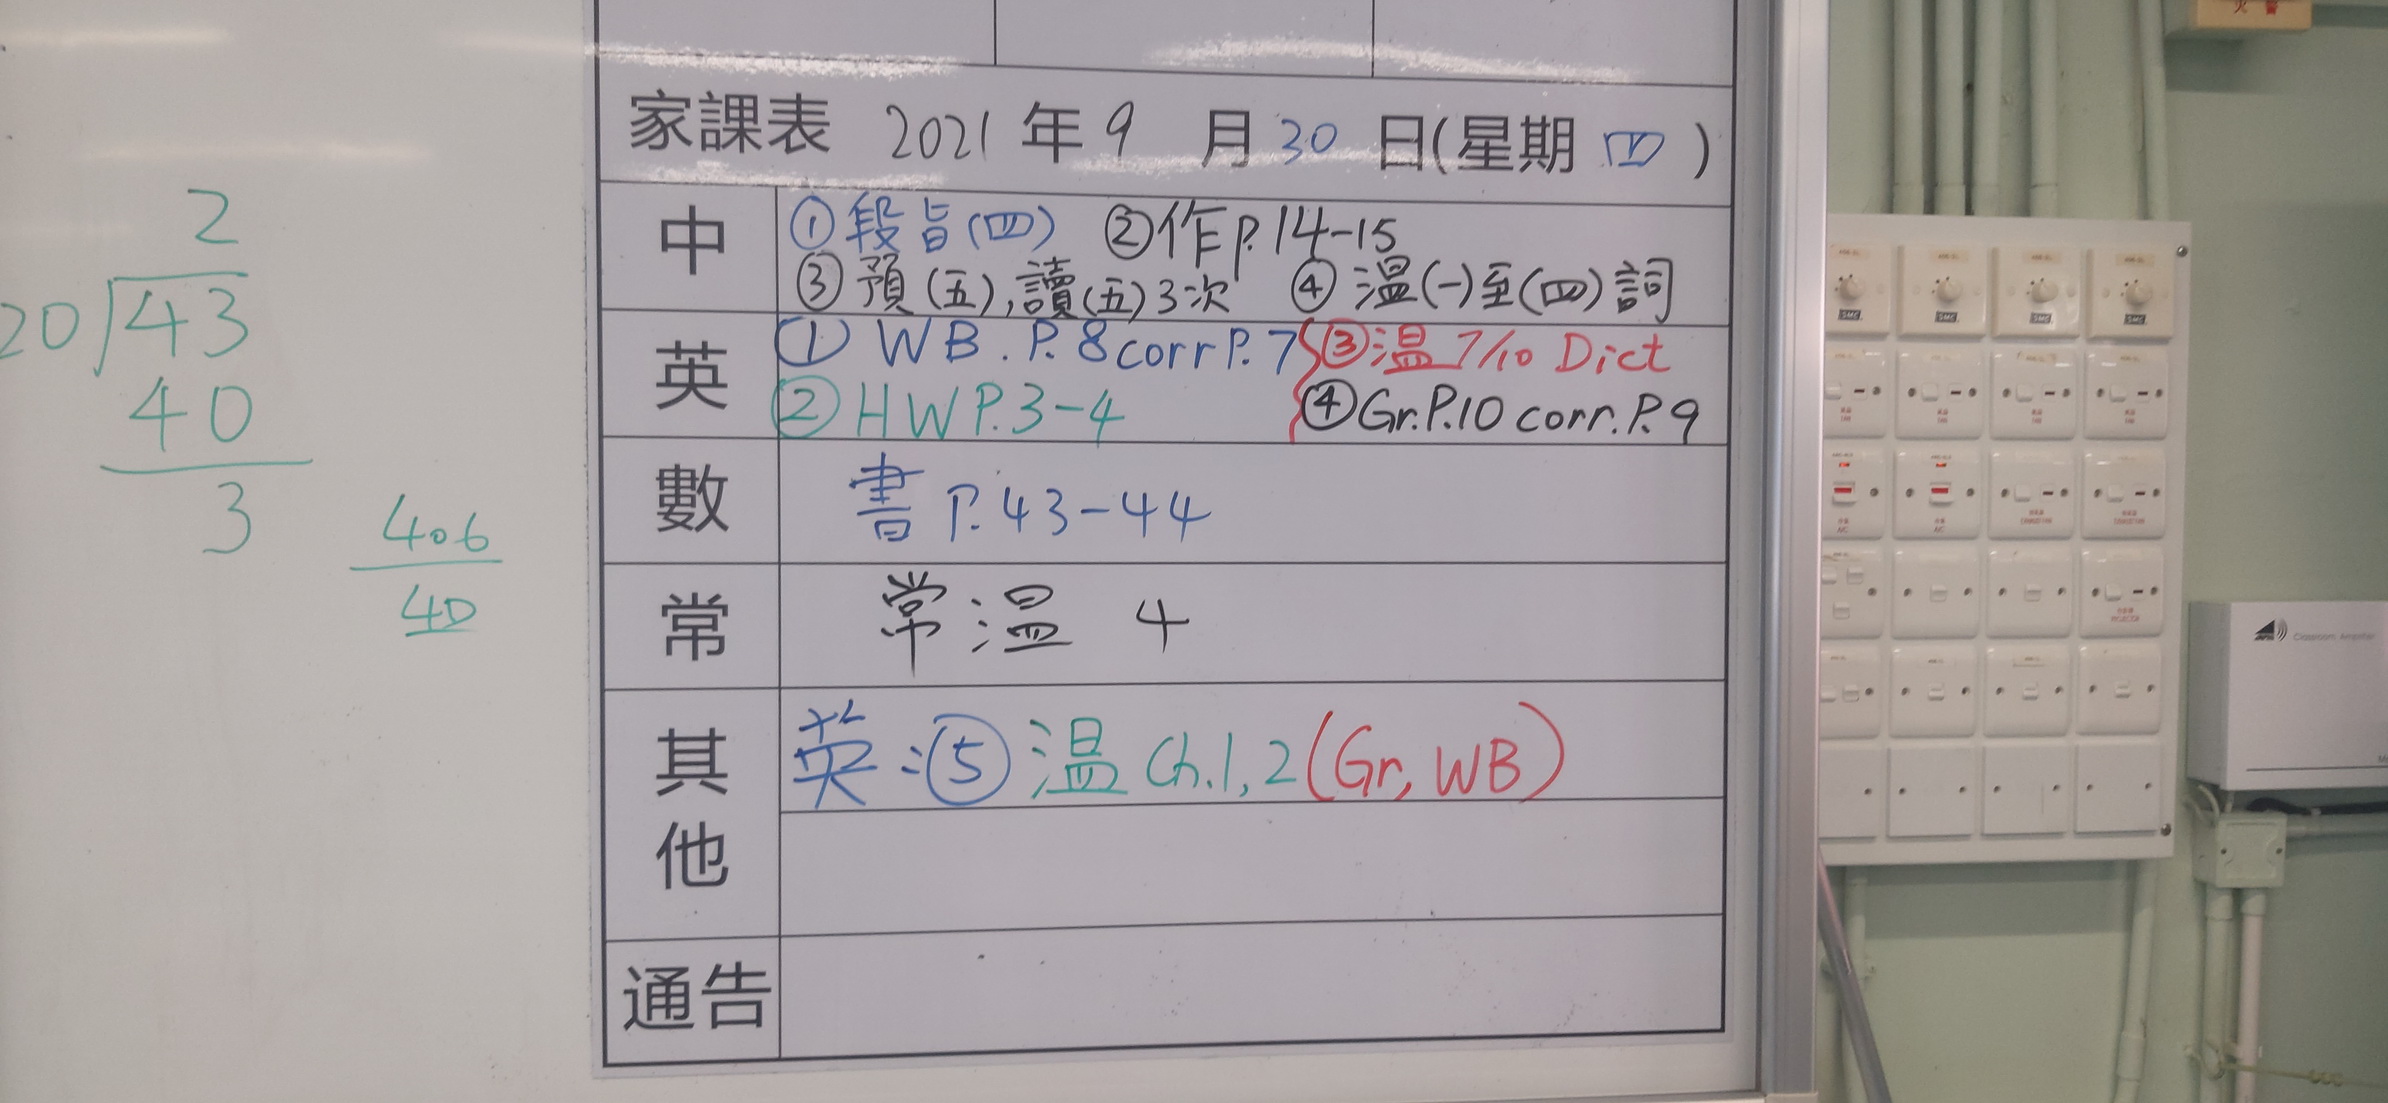 火警
家課表 2021 年 9 月 30 日(星期 四 )
中
① 段旨(四) ②作P.14-15
③ 預(五),讀(五)3次 ④ 溫(一)至(四)詞
英
① WB. P.8 corr P.7 ③溫 7/10 Dict
② HW P.3-4 ④Gr.P.10 corr.P.9
數
書 P.43-44
常
常溫 4
其他
英:⑤ 溫 Ch.1,2 (Gr, WB)
通告
2
20 43
40
3
406
40
SMC SMC SMC SMC
Classroom Amplifier